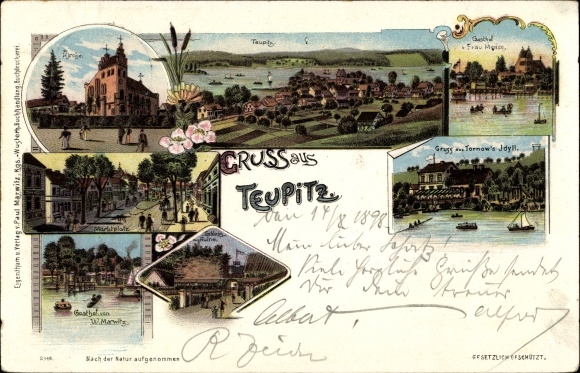 Kirche.
Teupitz.
Gasthof
v. Frau Menice.
Eigenthum u. Verlag v. Paul Marwitz, Kgs.-Wusterh. Buchhandlung, Buchdruckerei.
GRUSS aus
TEUPITZ.
Gruss aus Tornow's Idyll.
Marktplatz
Ruine.
Gasthof von
W. Marwitz.
Den 14/X 1898
Mein lieber
Viele herzliche Grüße sendet
Dir Dein treuer
Albert. Alfred
R
Nach der Natur aufgenommen
GESETZLICH GESCHÜTZT.